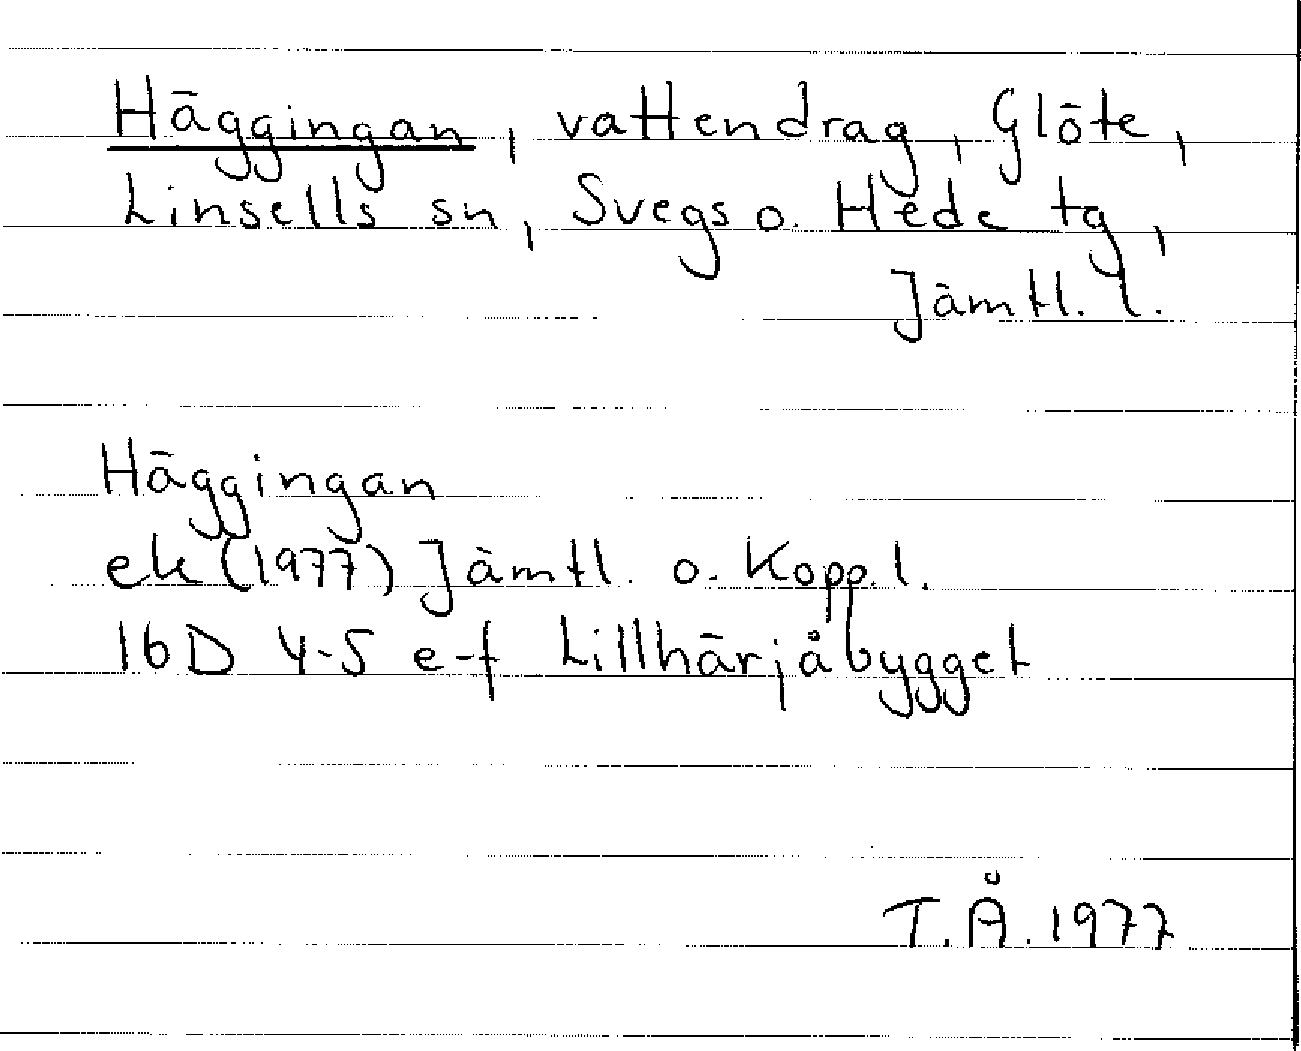 Häggingan, vattendrag, Glöte,
Linsells sn, Svegs o. Hede tg,
Jämtl. l.
Häggingan
ek (1977) Jämtl. o. Kopp. l.
16D 4-5 e-f Lillhärjåbygget
T.Å. 1977